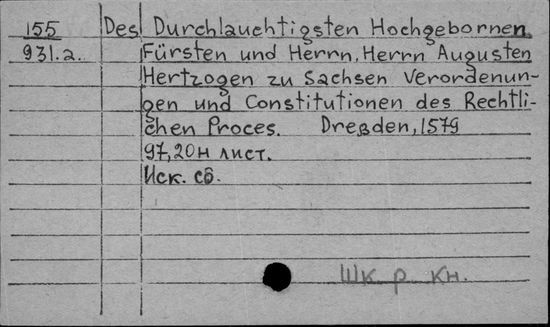 155 Des Durchlauchtigsten Hochgebornen
931.2. Fürsten und Herrn, Herrn Augusten
Hertzogen zu Sachsen Verordenun-
gen und Constitutionen des Rechtli-
chen Proces. Dreßden, 1579
97, 20н лист.
Иск. св.
Шк р кн.